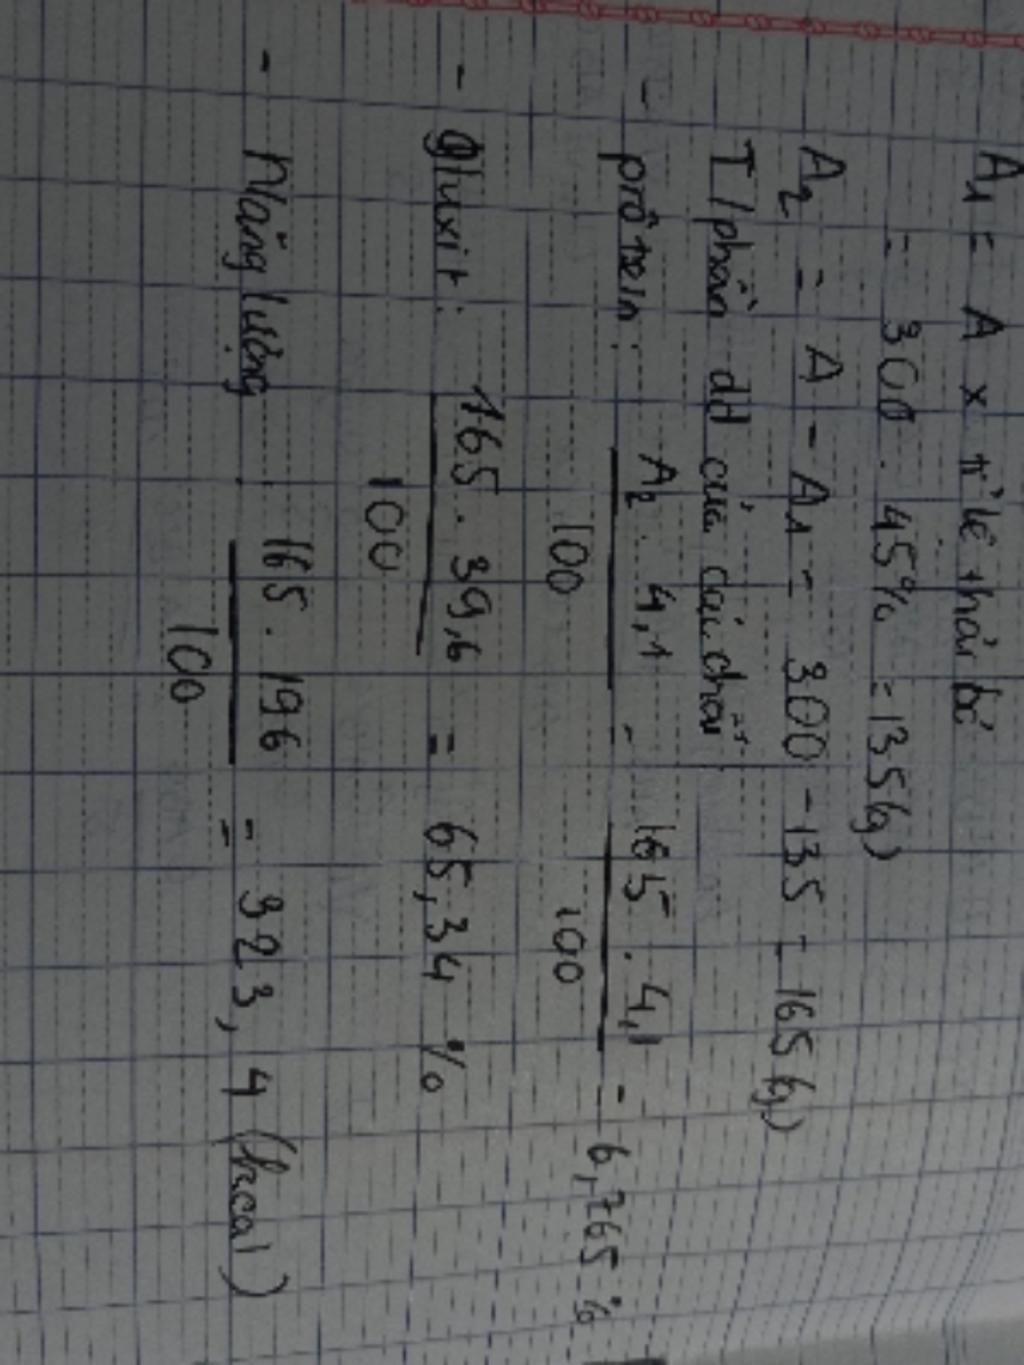 A1 = A x tỉ lệ thải bỏ
= 300 . 45% = 135 (g)
A2 = A - A1 = 300 - 135 = 165 (g)
T/phần dd của
- prôtein: A2 . 4,1 / 100 = 165 . 4,1 / 100 = 6,765 %
- gluxit: 165 . 39,6 / 100 = 65,34 %
- Năng lượng: 165 . 196 / 100 = 323,4 (kcal)